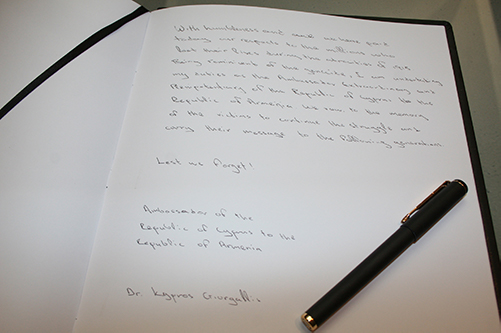 With humbleness and we have paid
today our respects to the millions who
lost their lives during the atrocities of 1915
Being reminded of the genocide, I am undertaking
my duties as the Ambassador Extraordinary and
Plenipotentiary of the Republic of Cyprus to the
Republic of Armenia. We owe to the memory
of the victims to continue the struggle and
carry their message to the following generations
Lest we forget!
Ambassador of the
Republic of Cyprus to the
Republic of Armenia
Dr. Kypros Giorgallis